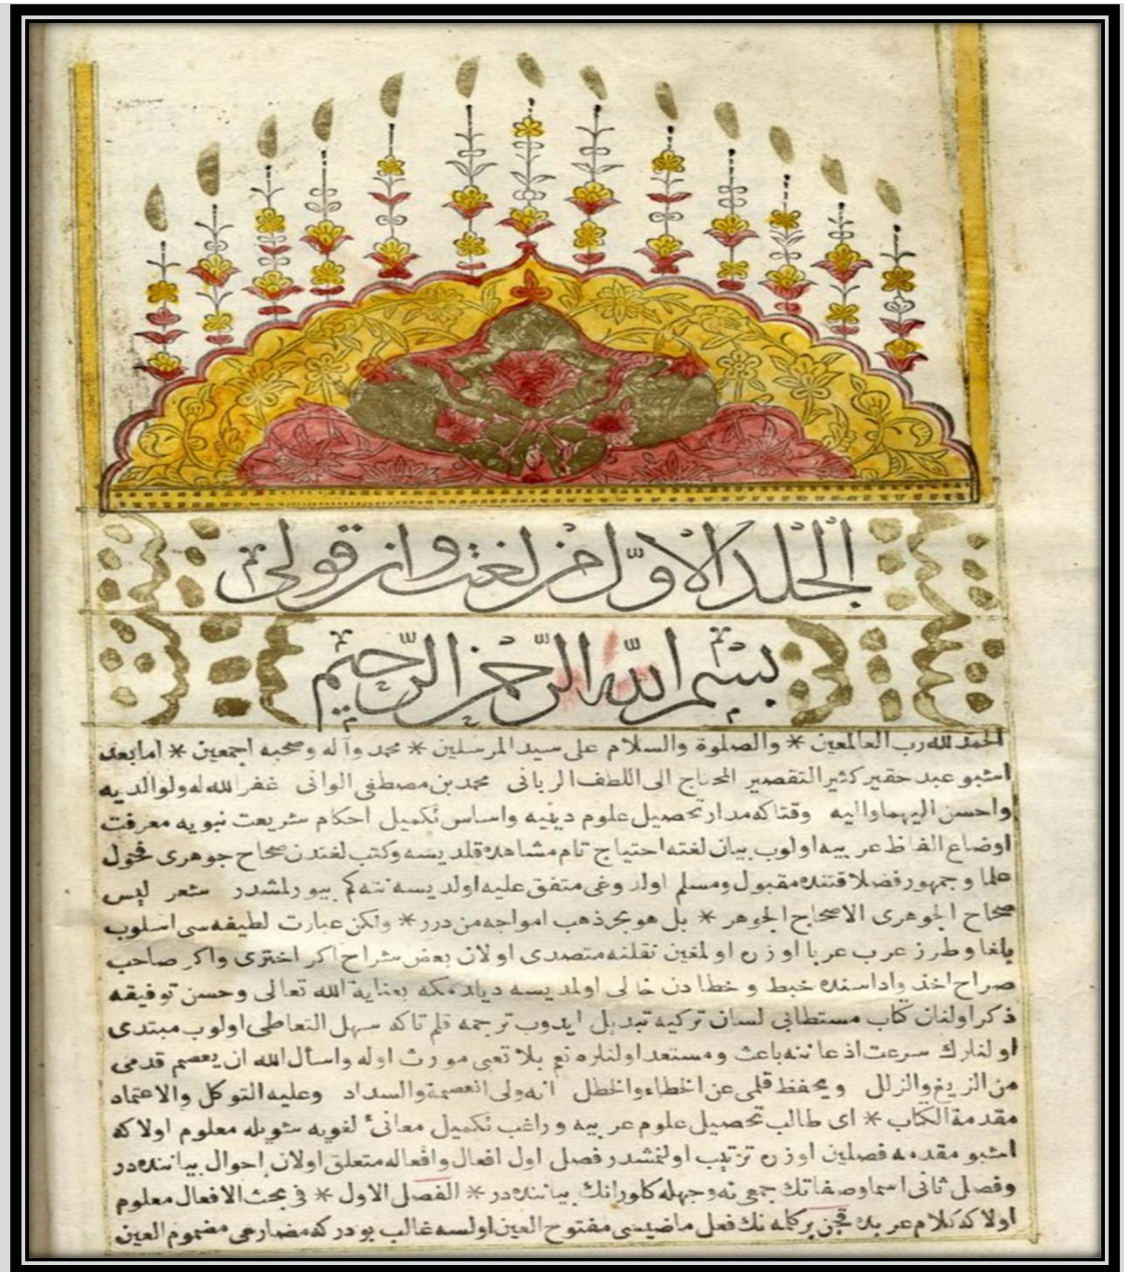 الجلد الاول من لغت وانقولى
بسم الله الرحمن الرحيم
الحمد لله رب العالمين * والصلوة والسلام على سيد المرسلين * محمد وآله وصحبه اجمعين * اما بعد
اشبو عبد حقير كثير التقصير المحتاج الى اللطف الربانى محمد بن مصطفى الوانى غفر الله له ولوالديه
واحسن اليهما واليه وقتاكه مدار تحصيل علوم دينيه واساس تكميل احكام شريعت نبويه معرفت
اوضاع الفاظ عربيه اولوب بيان لغته احتياج تام مشاهده قلديسه وكتب لغتدن صحاح جوهرى فحول
علما وجمهور فضلا قتنده مقبول ومسلم اولدوغى متفق عليه اولديسه نته كم بيورلمشدر شعر ليس
صحاح الجوهرى الا صحاح الجوهر * بل هو بحر ذهب امواجه من درر * ولكن عبارت لطيفه سى اسلوب
بلغا وطرز عرب عربا اوزره اولمغين نقلنه متصدى اولان بعض شراح اكر اخترى واكر صاحب
صراح اخذ واداسنده خبط و خطادن خالى اولمديسه ديلدمكه بعناية الله تعالى وحسن توفيقه
ذكر اولنان كتاب مستطابى لسان تركيه تبديل ايدوب ترجمه قلم تاكه سهل التعاطى اولوب مبتدى
اولنلرك سرعت اذعاننه باعث ومستعد اولنلره نعم بلا تعبى مورث اوله واسأل الله ان يعصم قدمى
من الزيغ والزلل ويحفظ قلمى عن الخطاء والخطل انه ولى العصمة والسداد وعليه التوكل والاعتماد
مقدمة الكتاب * اى طالب تحصيل علوم عربيه وراغب تكميل معانئ لغويه شويله معلوم اولاكه
اشبو مقدمه فصلين اوزره ترتيب اولنمشدر فصل اول افعال وافعاله متعلق اولان احوال بياننده در
وفصل ثانى اسما وصفاتك جمعى نه وجهله كلورانك بياننده در * الفصل الاول * فى بحث الافعال معلوم
اولاكه كلام عربده قچن بر كلمه نك فعل ماضيسى مفتوح العين اولسه غالب بودركه مضارعى مضموم العين